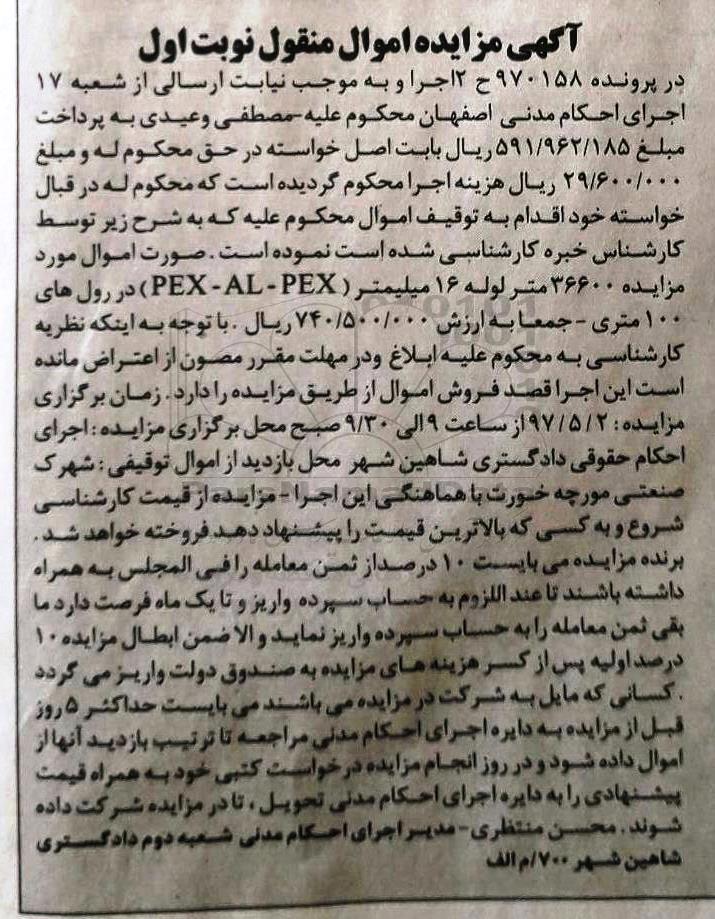 آگهی مزایده اموال منقول نوبت اول
در پرونده ۹۷۰۱۵۸ح ۲اجرا و به موجب نیابت ارسالی از شعبه ۱۷
اجرای احکام مدنی اصفهان محکوم علیه-مصطفی وعیدی به پرداخت
مبلغ ۵۹۱/۹۶۲/۱۸۵ریال بابت اصل خواسته در حق محکوم له و مبلغ
۲۹/۶۰۰/۰۰۰ ریال هزینه اجرا محکوم گردیده است که محکوم له در قبال
خواسته خود اقدام به توقیف اموال محکوم علیه که به شرح زیر توسط
کارشناس خبره کارشناسی شده است نموده است . صورت اموال مورد
مزایده ۳۶۶۰۰ متر لوله ۱۶ میلیمتر (PEX-AL-PEX) در رول های
۱۰۰ متری - جمعا به ارزش ۷۴۰/۵۰۰/۰۰۰ ریال . با توجه به اینکه نظریه
کارشناسی به محکوم علیه ابلاغ ودر مهلت مقرر مصون از اعتراض مانده
است این اجرا قصد فروش اموال از طریق مزایده را دارد . زمان برگزاری
مزایده : ۹۷/۵/۲از ساعت ۹الی ۹/۳۰ صبح محل برگزاری مزایده : اجرای
احکام حقوقی دادگستری شاهین شهر محل بازدید از اموال توقیفی : شهرک
صنعتی مورچه خورت با هماهنگی این اجرا - مزایده از قیمت کارشناسی
شروع و به کسی که بالاترین قیمت را پیشنهاد دهد فروخته خواهد شد .
برنده مزایده می بایست ۱۰ درصداز ثمن معامله را فی المجلس به همراه
داشته باشند تا عند اللزوم به حساب سپرده واریز و تا یک ماه فرصت دارد ما
بقی ثمن معامله را به حساب سپرده واریز نماید و الا ضمن ابطال مزایده ۱۰
درصد اولیه پس از کسر هزینه های مزایده به صندوق دولت واریز می گردد
. کسانی که مایل به شرکت در مزایده می باشند می بایست حداکثر ۵روز
قبل از مزایده به دایره اجرای احکام مدنی مراجعه تا ترتیب بازدید آنها از
اموال داده شود و در روز انجام مزایده درخواست کتبی خود به همراه قیمت
پیشنهادی را به دایره اجرای احکام مدنی تحویل ، تا در مزایده شرکت داده
شوند . محسن منتظری - مدیر اجرای احکام مدنی شعبه دوم دادگستری
شاهین شهر ۷۰۰/م الف